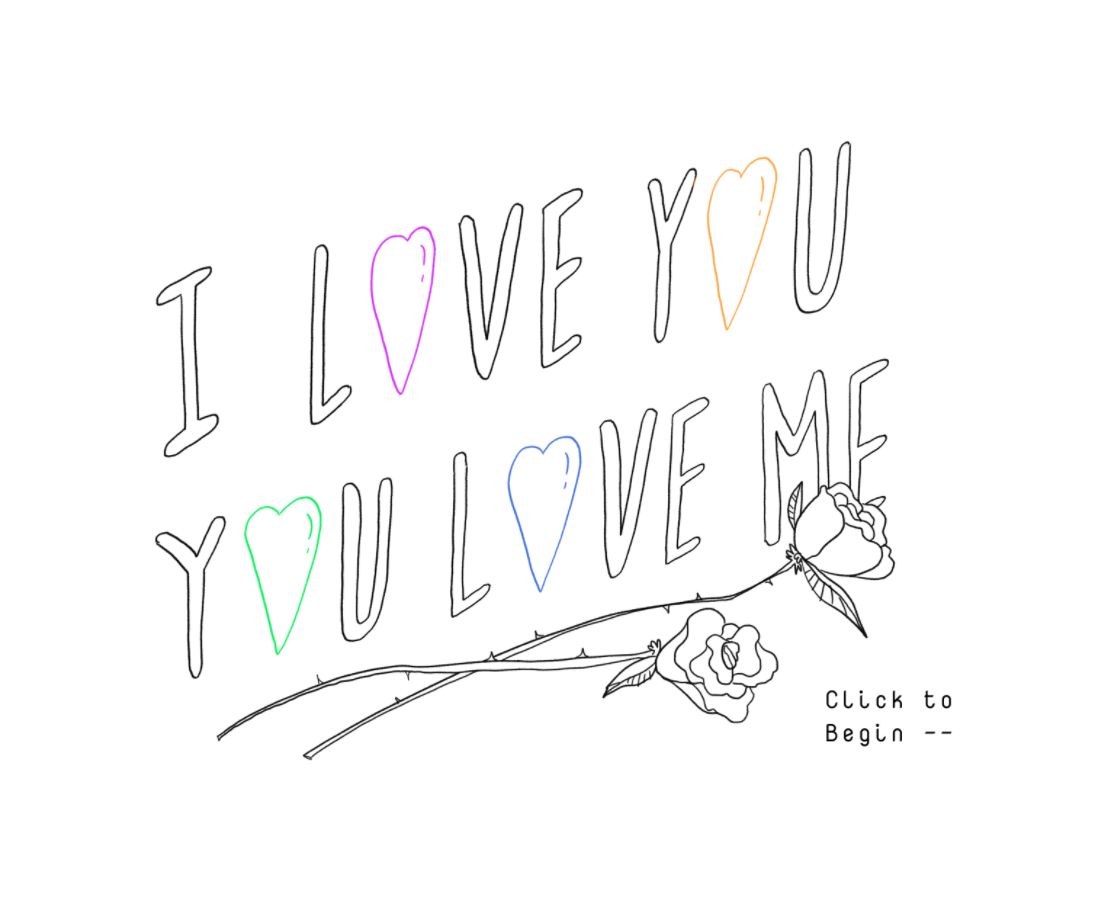 I LOVE YOU
YOU LOVE ME
Click to
Begin --